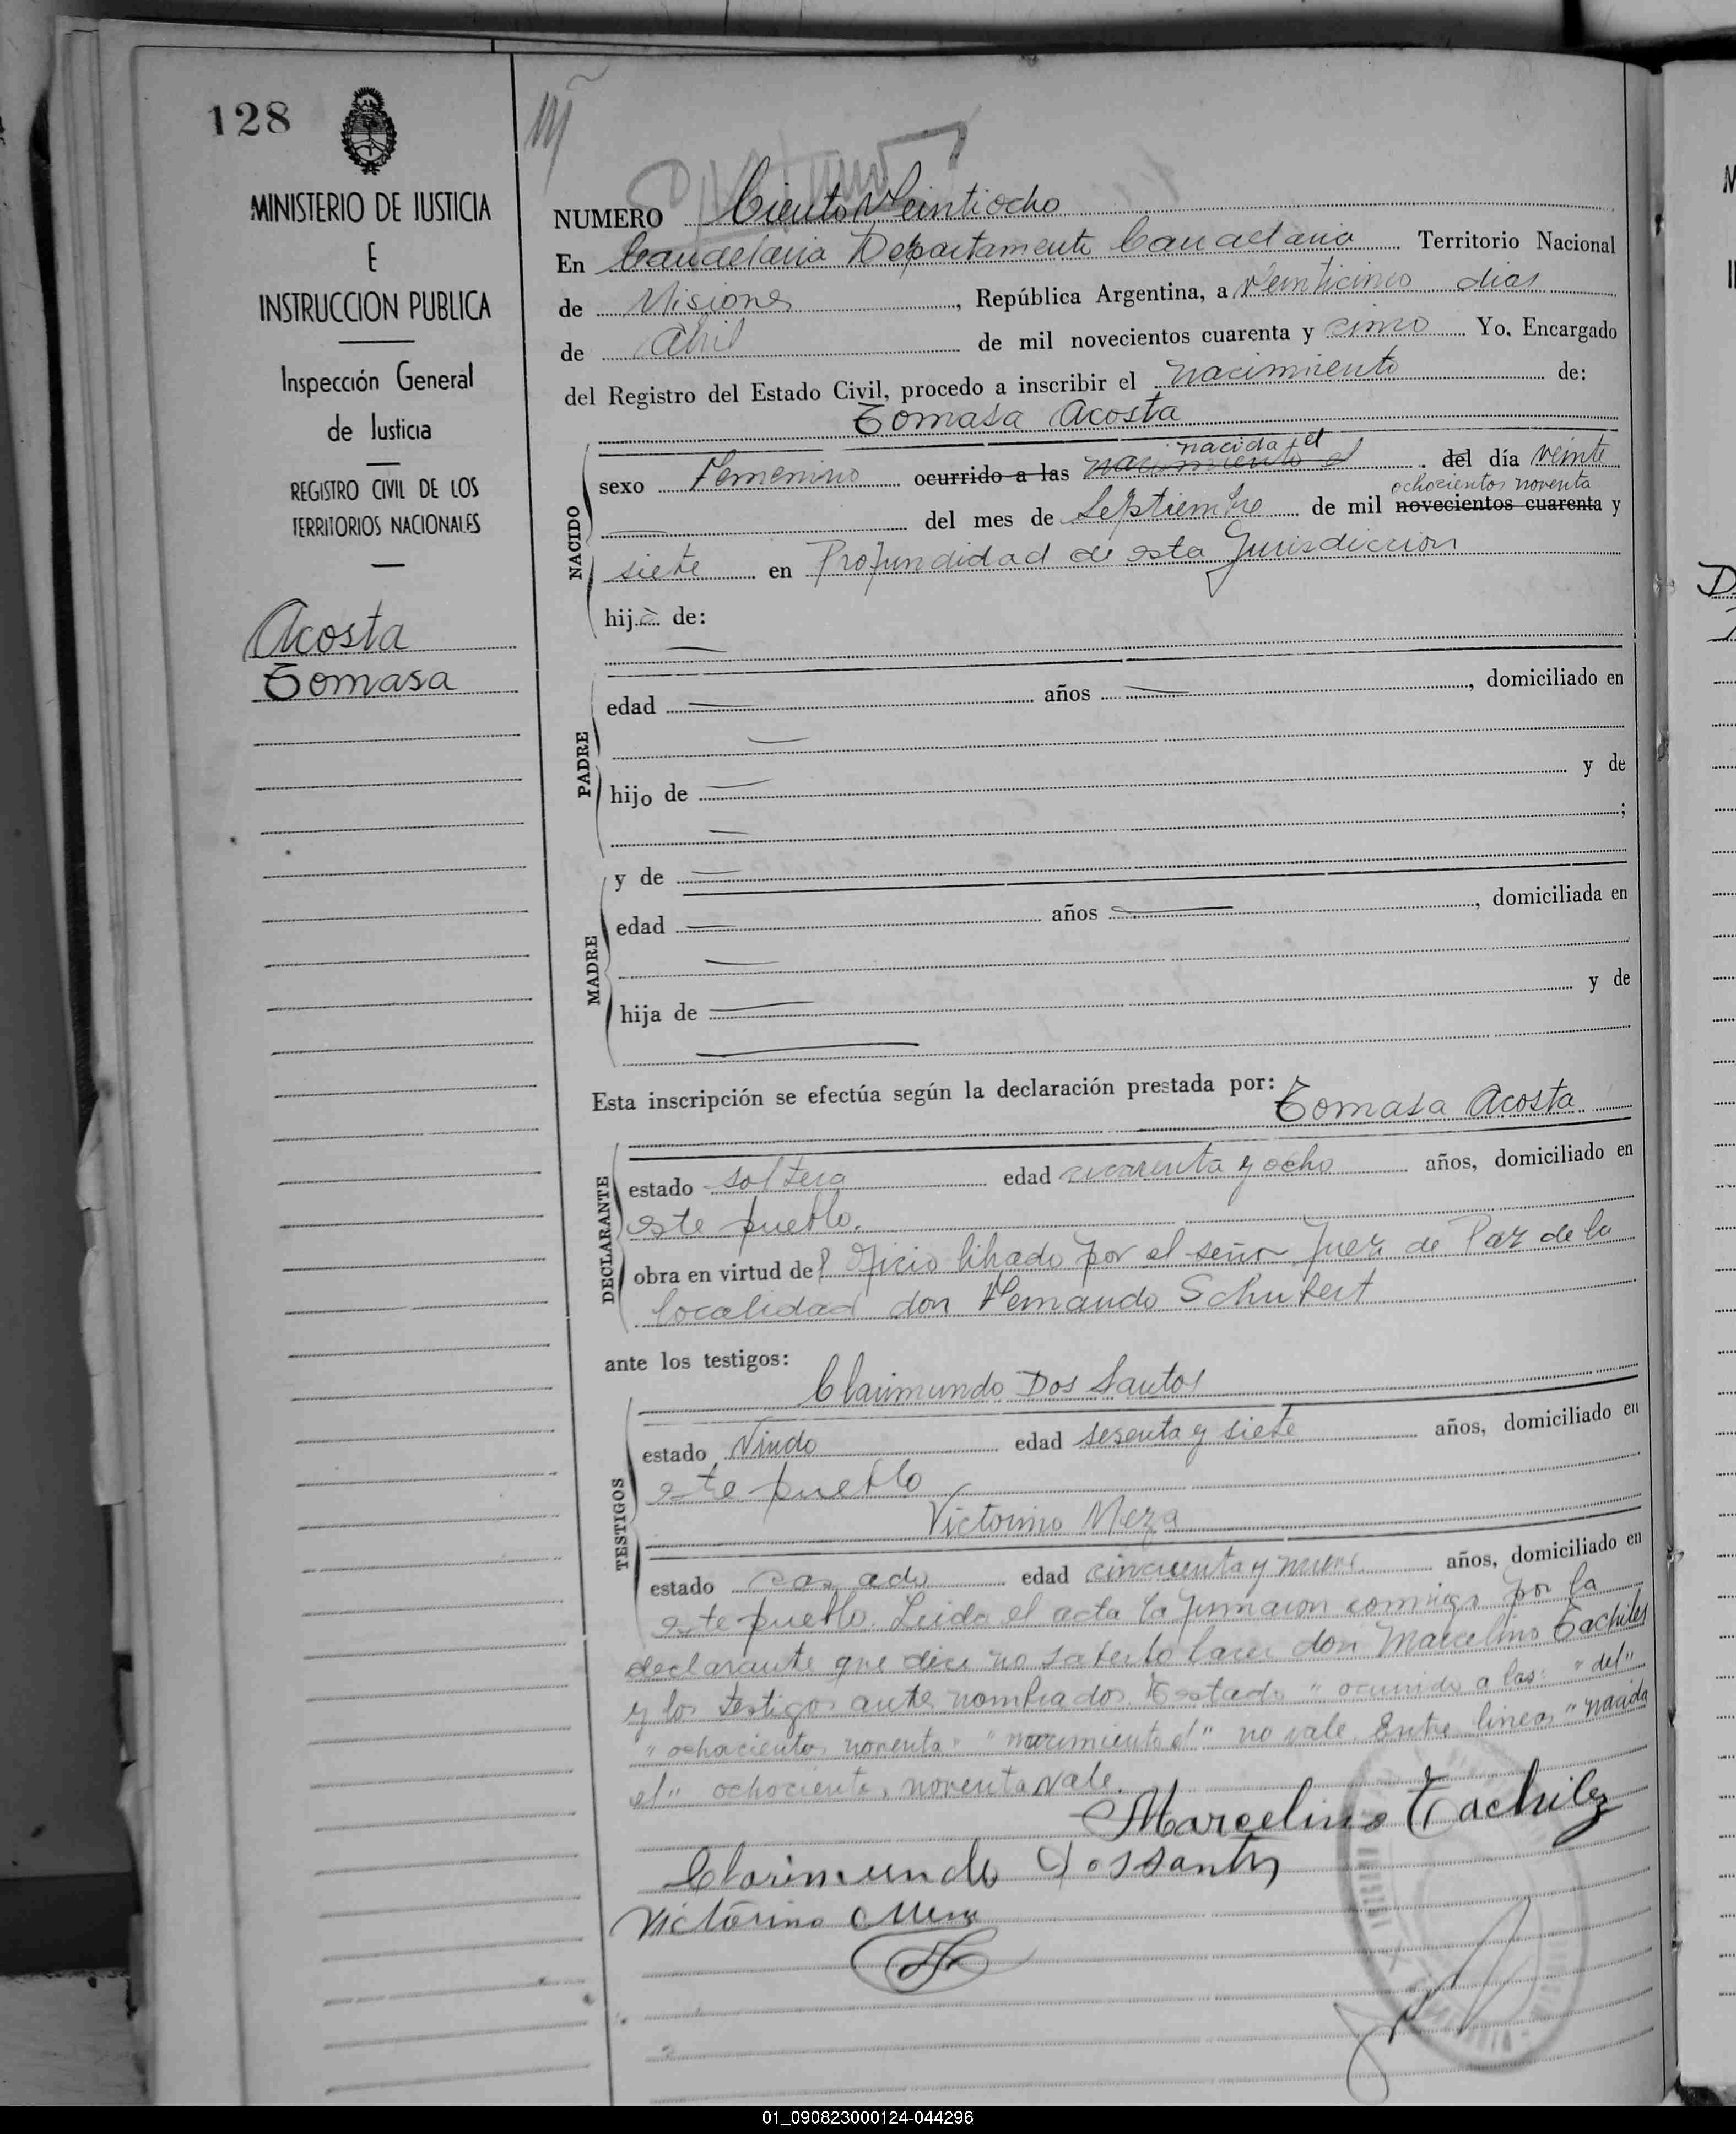 128
MINISTERIO DE JUSTICIA
E
INSTRUCCION PUBLICA
Inspección General
de Justicia
REGISTRO CIVIL DE LOS
TERRITORIOS NACIONALES
Acosta
Tomasa
NUMERO Ciento Veintiocho
En Candelaria Departamento Candelaria Territorio Nacional
de Misiones, República Argentina, a Veinticinco dias
de Abril de mil novecientos cuarenta y cinco Yo, Encargado
del Registro del Estado Civil, procedo a inscribir el nacimiento de:
Tomasa Acosta
nacida el
sexo Femenino ocurrido a las nacimiento el del día veinte
ochocientos noventa
del mes de Septiembre de mil novecientos cuarenta y
siete en Profundidad de esta Jurisdiccion
NACIDO
hija de:
edad años , domiciliado en
PADRE
hijo de y de
;
y de
edad años , domiciliada en
MADRE
hija de y de
Esta inscripción se efectúa según la declaración prestada por:
Tomasa Acosta
estado soltera edad cuarenta y ocho años, domiciliado en
este pueblo.
DECLARANTE
obra en virtud de Oficio librado por el señor Juez de Paz de la
localidad don Fernando Schubert
ante los testigos:
Clarimundo Dos Santos
estado Viudo edad sesenta y siete años, domiciliado en
este pueblo
TESTIGOS
Victorino Meza
estado casado edad cincuenta y nueve años, domiciliado en
este pueblo. Leida el acta la firmaron conmigo por la
declarante que dice no saberlo hacer don Marcelino Tachiles
y los testigos antes nombrados. Testado "ocurrido a las: "del"
"ochocientos noventa" "nacimiento el" no vale. Entre lineas "nacida
el" ochocientos noventa vale.
Marcelino Tachilez
Clarimundo Dossantos
Victorino Meza
01_090823000124-044296